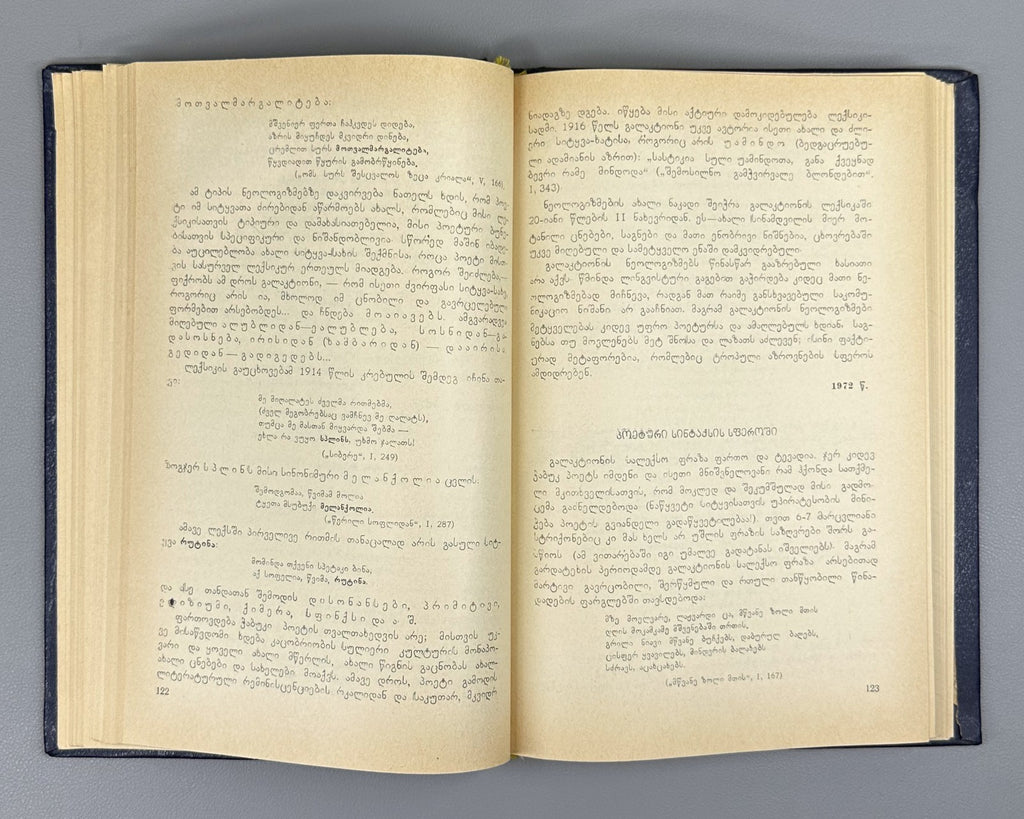 მოთვალმარგალიტება:
მშვენიერ ფერთა ჩაჰკვდეს დიდება,
აზრის მიყუჩდეს მკვიდრი დინება,
ცრემლით სურს მოთვალმარგალიტება,
წყვდიადით წყურის გამობრწყინება.
(„ომს სურს შესცვალოს ზეცა კრიალა“, V, 166).
ამ ტიპის ნეოლოგიზმებზე დაკვირვება ნათელს ხდის, რომ პოე-
ტი იმ სიტყვათა ძირებიდან აწარმოებს ახალს, რომლებიც მისი ლე-
ქსიკისათვის ტიპიური და დამახასიათებელია, მისი პოეტური ბუნე-
ბისათვის სპეციფიკური და ნიშანდობლივია. სწორედ მაშინ იბადე-
ბა აუცილებლობა ახალი სიტყვა-სახის შექმნისა, როცა პოეტი მისთ-
ვის სასურველ ლექსიკურ ერთეულს მიადგება. როგორ შეიძლება,—
ფიქრობს ამ დროს გალაკტიონი, — რომ ისეთი ძვირფასი სიტყვა-სახე,
როგორიც არის ია, მხოლოდ იმ ცნობილი და გავრცელებული
ფორმებით არსებობდეს... და ჩნდება მოაიავებს. ამგვარადვე
მიღებული ალუბლიდან—ეალუბლება, სოსნიდან—გა-
დასოსნება, ირისიდან (ზამბარიდან) — დააირისა,
გედიდან — გადიგედებს...
ლექსიკის გაუცხოვებამ 1914 წლის კრებულის შემდეგ იჩინა თა-
ვი:
მე მიღალატეს ძველმა რითმებმა,
(ძველ მეგობრებსაც ვამჩნევ მე ღალატს),
თუმცა მე მასთან მიყვარდა შებმა —
ეხლა რა ვუყო სპლინს, უხმო ჯალათს!
(„სიბერე“, I, 249)
ზოგჯერ სპლინს მისი სინონიმური მელანქოლია ცვლის:
შემოდგომაა, წვიმამ მოლია
ტყეთა მსუბუქი მელანქოლია.
(„წერილი სოფლიდან“, I, 287)
ამავე ლექსში პირველივე რითმის თანაცალად არის გასული სიტ-
ყვა რუტინა:
მომინდა თქვენი სპეტაკი ბინა,
აქ სოფელია, წვიმა, რუტინა.
და ასე თანდათან შემოდის დისონანსები, პრიმიტივი,
ქიმერა, სფინქსი და ა. შ.
ფართოვდება ჭაბუკი პოეტის თვალთახედვის არე; მისთვის უკ-
ვე მისაწვდომი ხდება კაცობრიობის სულიერი კულტურის მონაპო-
ვარი და ყოველი ახალი მწერლის, ახალი წიგნის გაცნობას ახალ-
ახალი ცნებები და სახელები მოაქვს. ამავე დროს, პოეტი გამოდის
ლიტერატურული რემინისცენციების რკალიდან და საკუთარ, მკვიდრ
122
ნიადაგზე დგება. იწყება მისი აქტიური დამოკიდებულება ლექსიკი-
სადმი. 1916 წელს გალაკტიონი უკვე ავტორია ისეთი ახალი და ძლი-
ერი სიტყვა-ხატისა, როგორიც არის უამინდო (ბედგაცრუებუ-
ლი ადამიანის აზრით): „სასტიკია სული უამინდოთა, განა ქვეყნად
ბევრი რამე მინდოდა“ („შემოსილნო გამჭვირვალე ბლონდებით“,
I, 343)
ნეოლოგიზმების ახალი ნაკადი შეიჭრა გალაკტიონის ლექსიკაში
20-იანი წლების II ნახევრიდან. ეს — ახალი სინამდვილის მიერ მო-
ტანილი ცნებები, საგნები და მათი ენობრივი ნიშნებია, ცხოვრებაში
უკვე მიღებული და სამეტყველო ენაში დამკვიდრებული.
გალაკტიონის ნეოლოგიზმებს წინასწარ გააზრებული ხასიათი
არა აქვს. წმინდა ლინგვისტური გაგებით გაჭირდება კიდეც მათი ნე-
ოლოგიზმებად მიჩნევა, რადგან მათ რაიმე განსხვავებული საკომუ-
ნიკაციო ნიშანი არ გააჩნიათ. მაგრამ გალაკტიონის ნეოლოგიზმები
მეტყველებას კიდევ უფრო პოეტურსა და ამაღლებულს ხდიან. საგ-
ნებსა თუ მოვლენებს მეტ შნოსა და ლაზათს აძლევენ; ისინი ფაქტი-
ურად მეტაფორებია, რომლებიც ტროპული აზროვნების სფეროს
ამდიდრებენ.
1972 წ.
პოეტური სინტაქსის სფეროში
გალაკტიონის სალექსო ფრაზა ფართო და ტევადია. ჯერ კიდევ
ჭაბუკ პოეტს იმდენი და ისეთი მნიშვნელოვანი რამ ჰქონდა სათქმე-
ლი მკითხველისათვის, რომ მოკლედ და შეკუმშულად მისი გადმო-
ცემა გაძნელდებოდა (ნაწყვეტი სიტყვისათვის უპირატესობის მინი-
ჭება პოეტის გვიანდელი გადაწყვეტილებაა!). თვით 6-7 მარცვლიანი
სტრიქონებიც კი მას ხელს არ უშლის ფრაზის საზღვრები შორს გა-
სწიოს (ამ ვითარებაში იგი უმალვე გადატანას იშველიებს). მაგრამ
გარდატეხის პერიოდამდე გალაკტიონის სალექსო ფრაზა არსებითად
მარტივი გავრცობილი, შერწყმული და რთული თანწყობილი წინა-
დადების ფარგლებში თავსდებოდა:
მზე მოელვარე, ლაჟვარდი ცა, მწვანე ზოლი მთის
დღის მოკამკამე მშვენებაში თრთის.
გრილა ნიავი მწვანე ბუჩქებს, დაბურულ ბაღებს,
ცისფერ ყვავილებს, მინდვრის ბალახებს
სძრავს, აცახცახებს.
(„მწვანე ზოლი მთის“, I, 167)
123